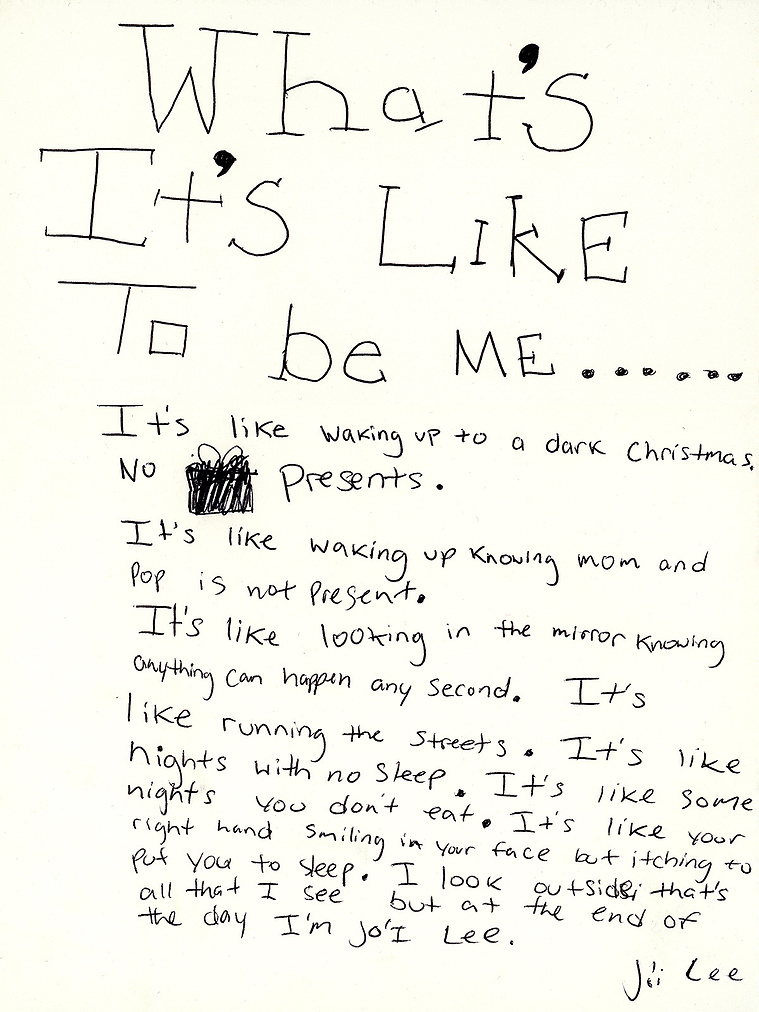 What's
It's LIKE
To be ME......
It's like waking up to a dark Christmas.
No Presents.
It's like waking up knowing mom and
Pop is not Present.
It's like looking in the mirror knowing
anything can happen any second. It's
like running the streets. It's like
nights with no sleep. It's like some
nights you don't eat. It's like your
right hand smiling in your face but itching to
put you to sleep. I look outside that's
all that I see but at the end of
the day I'm Jo'I Lee.
Lee